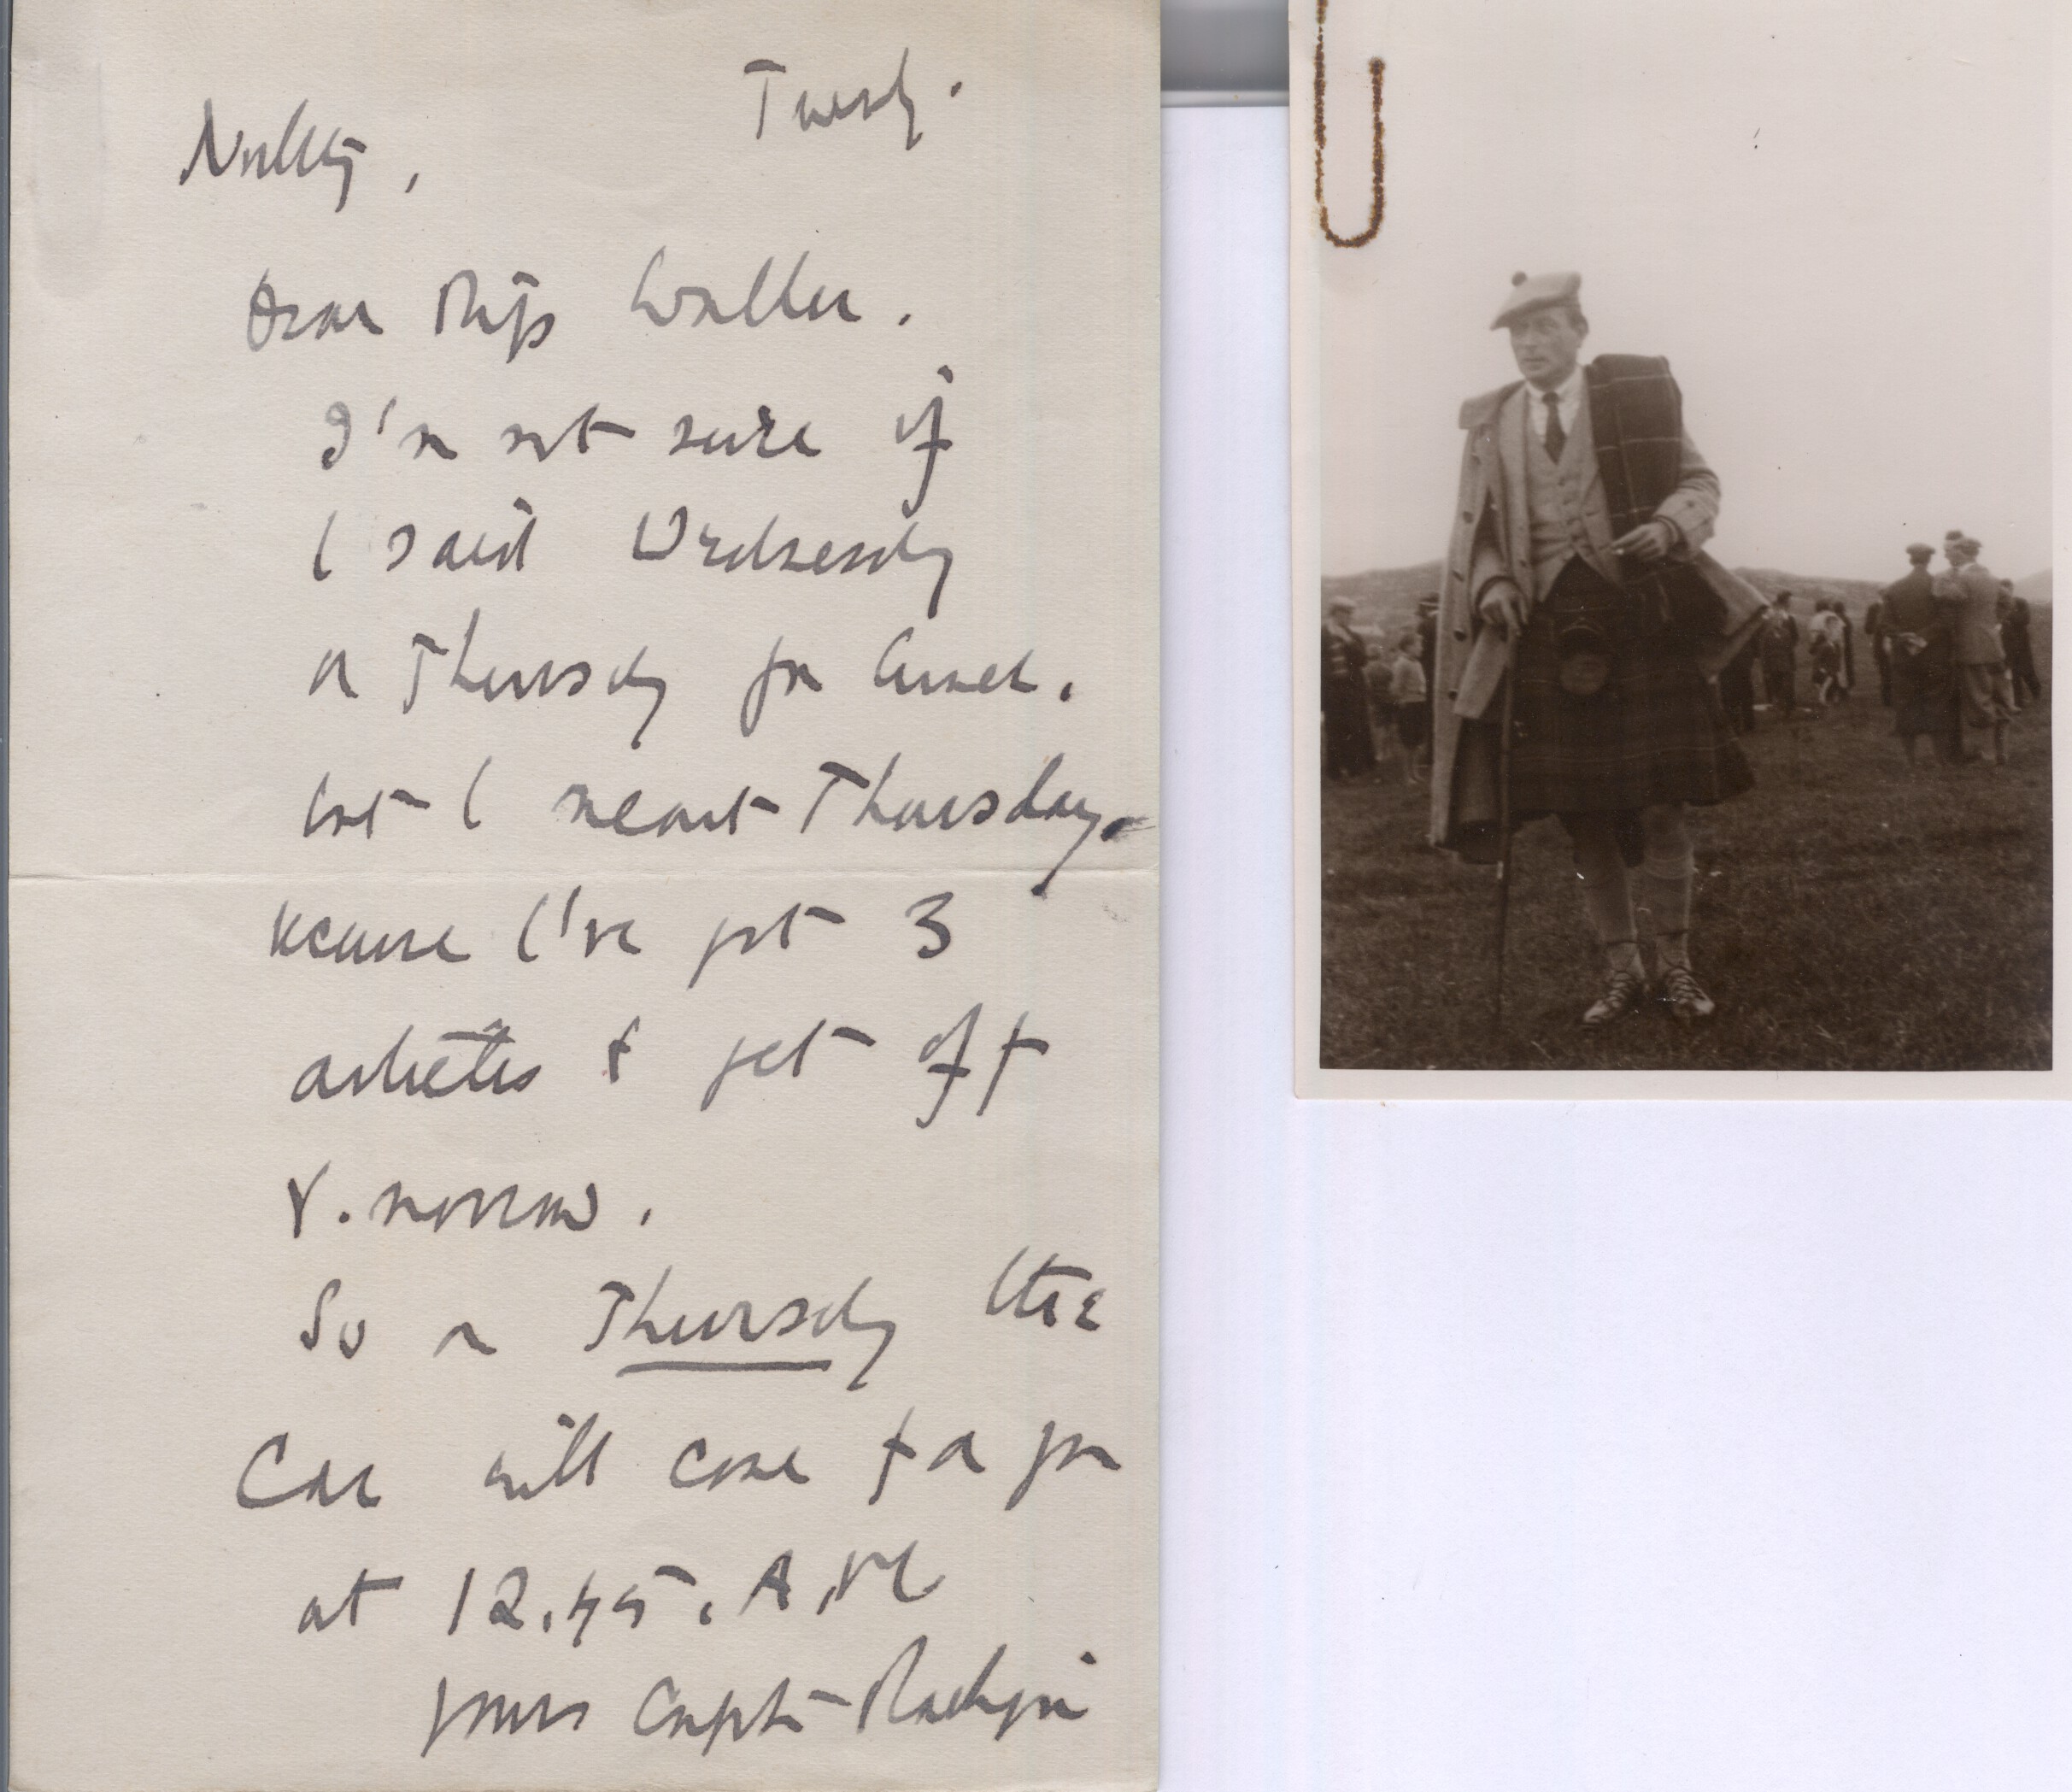 Tuesdy.
Dear Miss Waller.
I'm not sure if
I said Wednesdy
or Thursdy for lunch.
but I meant Thursday.
because I've got 3
articles to get off
to.morrow.
So on Thursdy the
Car will come for you
at 12.45. A.M
yours Compton Mackenzie